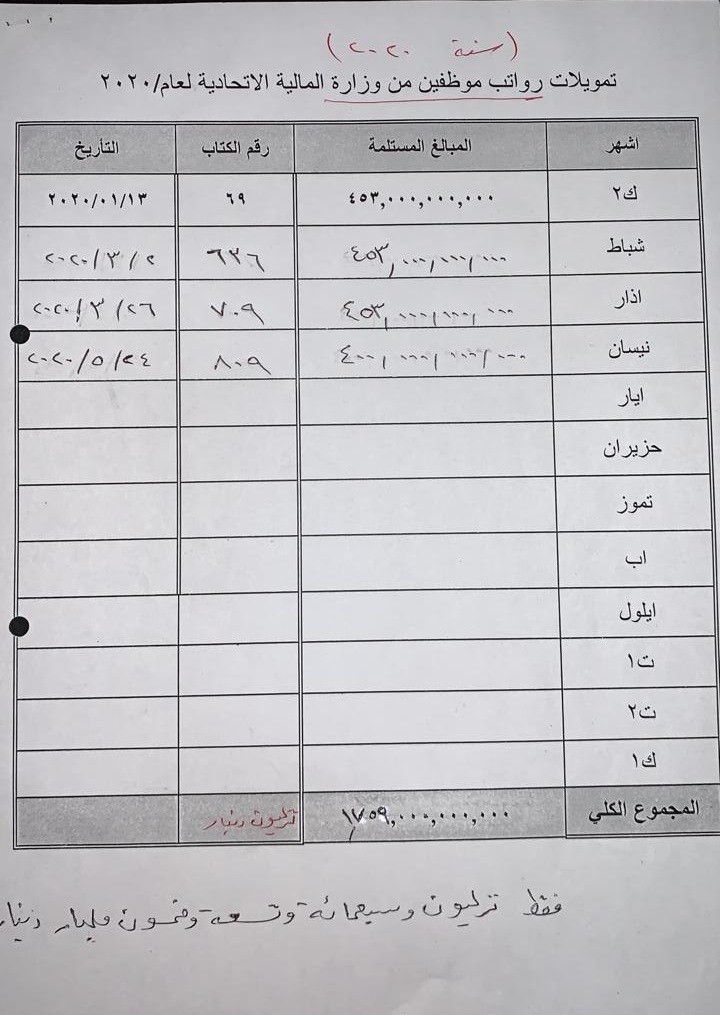 (سنة ٢٠٢٠)
تمويلات رواتب موظفين من وزارة المالية الاتحادية لعام/٢٠٢٠
اشهر المبالغ المستلمة رقم الكتاب التأريخ
ك٢ ٤٥٣,٠٠٠,٠٠٠,٠٠٠ ٦٩ ٢٠٢٠/٠١/١٣
شباط ٤٥٣,٠٠٠,٠٠٠,٠٠٠ ٦٣٦ ٢٠٢٠/٣/٢
اذار ٤٥٣,٠٠٠,٠٠٠,٠٠٠ ٧٠٩ ٢٠٢٠/٣/٢٦
نيسان ٤٠٠,٠٠٠,٠٠٠,٠٠٠ ٨٠٩ ٢٠٢٠/٥/٢٤
ايار
حزيران
تموز
اب
ايلول
ت١
ت٢
ك١
المجموع الكلي ١,٧٥٩,٠٠٠,٠٠٠,٠٠٠ ترليون دينار
فقط ترليون وسبعمائة وتسعة وخمسون مليار دينار